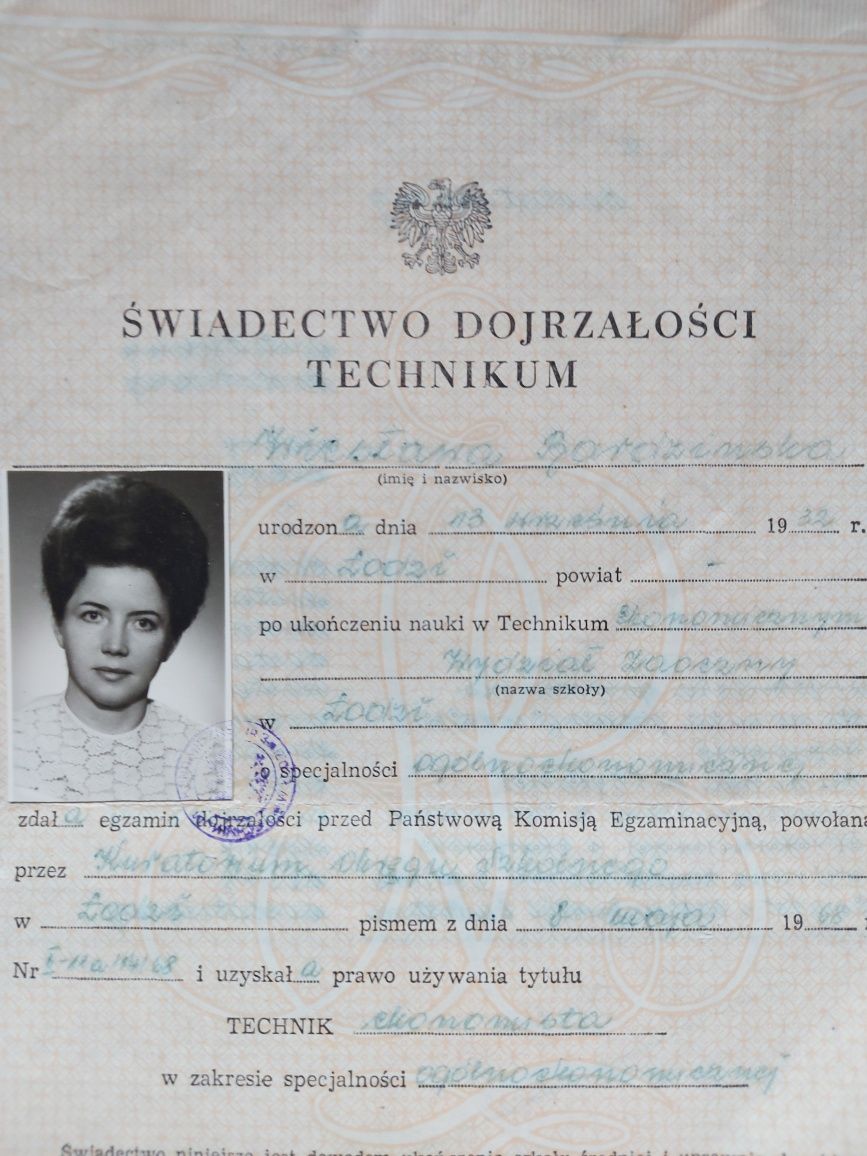 ŚWIADECTWO DOJRZAŁOŚCI
TECHNIKUM
Wiesława Bardzińska
(imię i nazwisko)
urodzona dnia 13 września 1932 r.
w Łodzi powiat -
po ukończeniu nauki w Technikum Ekonomicznym
Wydział Zaoczny
(nazwa szkoły)
w Łodzi
o specjalności ogólnoekonomicznej
zdała egzamin dojrzałości przed Państwową Komisją Egzaminacyjną, powołaną
przez Kuratorium Okręgu Szkolnego
w Łodzi pismem z dnia 8 maja 1968
Nr i uzyskała prawo używania tytułu
TECHNIK ekonomista
w zakresie specjalności ogólnoekonomicznej
Świadectwo niniejsze jest dowodem ukończenia szkoły średniej i